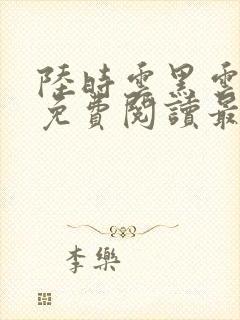 陸時雲黑雲
免費閱讀最
李樂